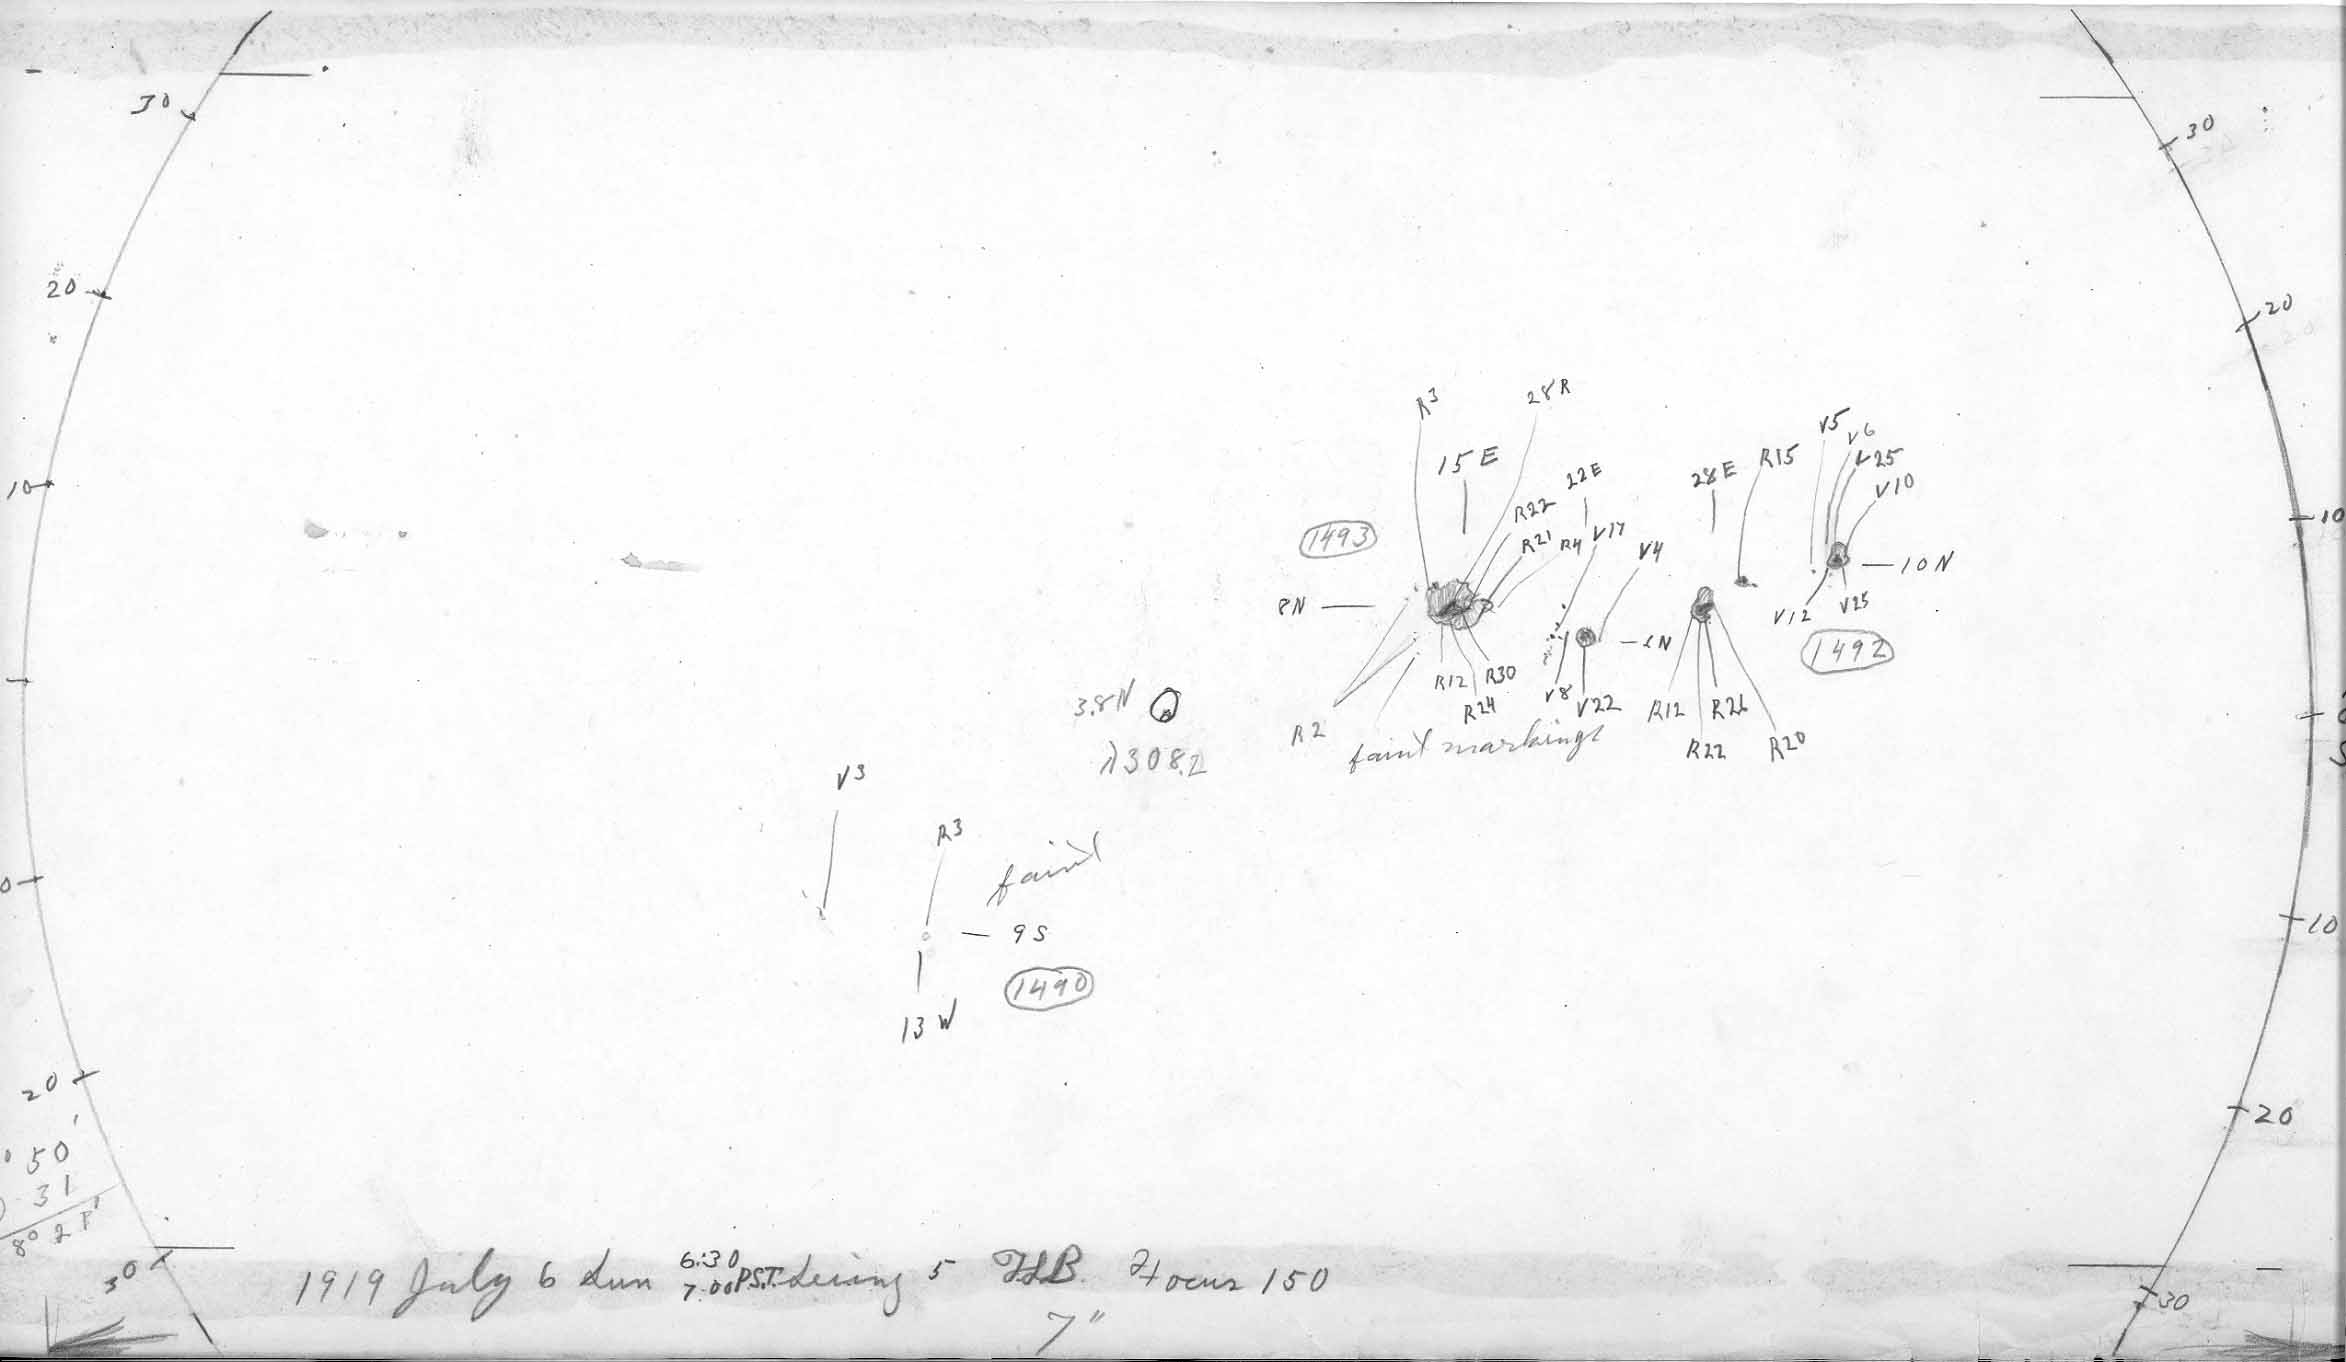 30
30
20
20
R3
28R
V5
V6
15 E
22E
28E
R15
V25
10
V10
R22
10
1493
R21
R4
V17
V4
10 N
8N
V12
V25
1492
R12
R30
V8
V22
R12
R26
3.8N
R24
R2
faint markings
R22
R20
λ308.2
V3
R3
faint
0
10
9 S
1490
13 W
20
20
50'
31
30
1919 July 6 Sun 6:30
7:00 P.S.T. Seeing 5 Focus 150
30
7"